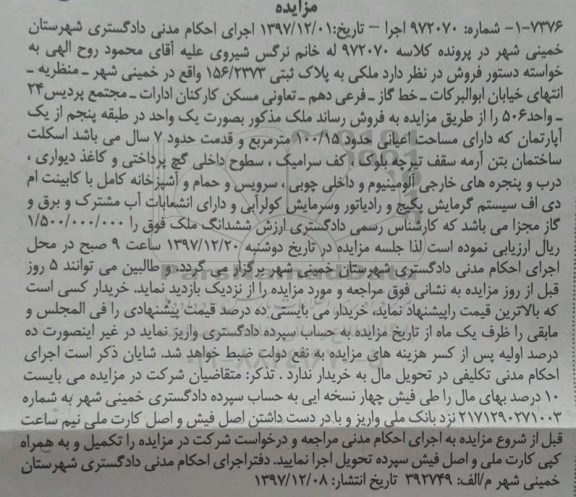 مزایده
۷۳۷۶-۱- شماره: ۹۷۲۰۷۰ اجرا – تاریخ: ۱۳۹۷/۱۲/۰۱ اجرای احکام مدنی دادگستری شهرستان
خمینی شهر در پرونده کلاسه ۹۷۲۰۷۰ له خانم نرگس شیروی علیه آقای محمود روح الهی به
خواسته دستور فروش در نظر دارد ملکی به پلاک ثبتی ۱۵۶/۲۳۷۳ واقع در خمینی شهر ـ منظریه ـ
انتهای خیابان ابوالبرکات ـ خط گاز ـ فرعی دهم ـ تعاونی مسکن کارکنان ادارات ـ مجتمع پردیس۲۴
ـ واحد۵۰۶ را از طریق مزایده به فروش رساند ملک مذکور بصورت یک واحد در طبقه پنجم از یک
آپارتمان که دارای مساحت اعیانی حدود ۱۰۰/۱۵ مترمربع و قدمت حدود ۷ سال می باشد اسکلت
ساختمان بتن آرمه سقف تیرچه بلوک ، کف سرامیک ، سطوح داخلی گچ پرداختی و کاغذ دیواری ،
درب و پنجره های خارجی آلومینیوم و داخلی چوبی ، سرویس و حمام و آشپزخانه کامل با کابینت ام
دی اف سیستم گرمایش پکیج و رادیاتور وسرمایش کولرآبی و دارای انشعابات آب مشترک و برق و
گاز مجزا می باشد که کارشناس رسمی دادگستری ارزش ششدانگ ملک فوق را ۱/۵۰۰/۰۰۰/۰۰۰
ریال ارزیابی نموده است لذا جلسه مزایده در تاریخ دوشنبه ۱۳۹۷/۱۲/۲۰ ساعت ۹ صبح در محل
اجرای احکام مدنی دادگستری شهرستان خمینی شهر برگزار می گردد. و طالبین می توانند ۵ روز
قبل از روز مزایده به نشانی فوق مراجعه و مورد مزایده را از نزدیک بازدید نماید. خریدار کسی است
که بالاترین قیمت راپیشنهاد نماید، خریدار می بایستی ده درصد قیمت پیشنهادی را فی المجلس و
مابقی را ظرف یک ماه از تاریخ مزایده به حساب سپرده دادگستری واریز نماید در غیر اینصورت ده
درصد اولیه پس از کسر هزینه های مزایده به نفع دولت ضبط خواهد شد. شایان ذکر است اجرای
احکام مدنی تکلیفی در تحویل مال به خریدار ندارد . تذکر: متقاضیان شرکت در مزایده می بایست
۱۰ درصد بهای مال را طی فیش چهار نسخه ایی به حساب سپرده دادگستری خمینی شهر به شماره
۲۱۷۱۲۹۰۲۷۱۰۰۳ نزد بانک ملی واریز و با در دست داشتن اصل فیش و اصل کارت ملی نیم ساعت
قبل از شروع مزایده به اجرای احکام مدنی مراجعه و درخواست شرکت در مزایده را تکمیل و به همراه
کپی کارت ملی و اصل فیش سپرده تحویل اجرا نمایید. دفتراجرای احکام مدنی دادگستری شهرستان
خمینی شهر م/الف: ۳۹۲۷۴۹ تاریخ انتشار: ۱۳۹۷/۱۲/۰۸